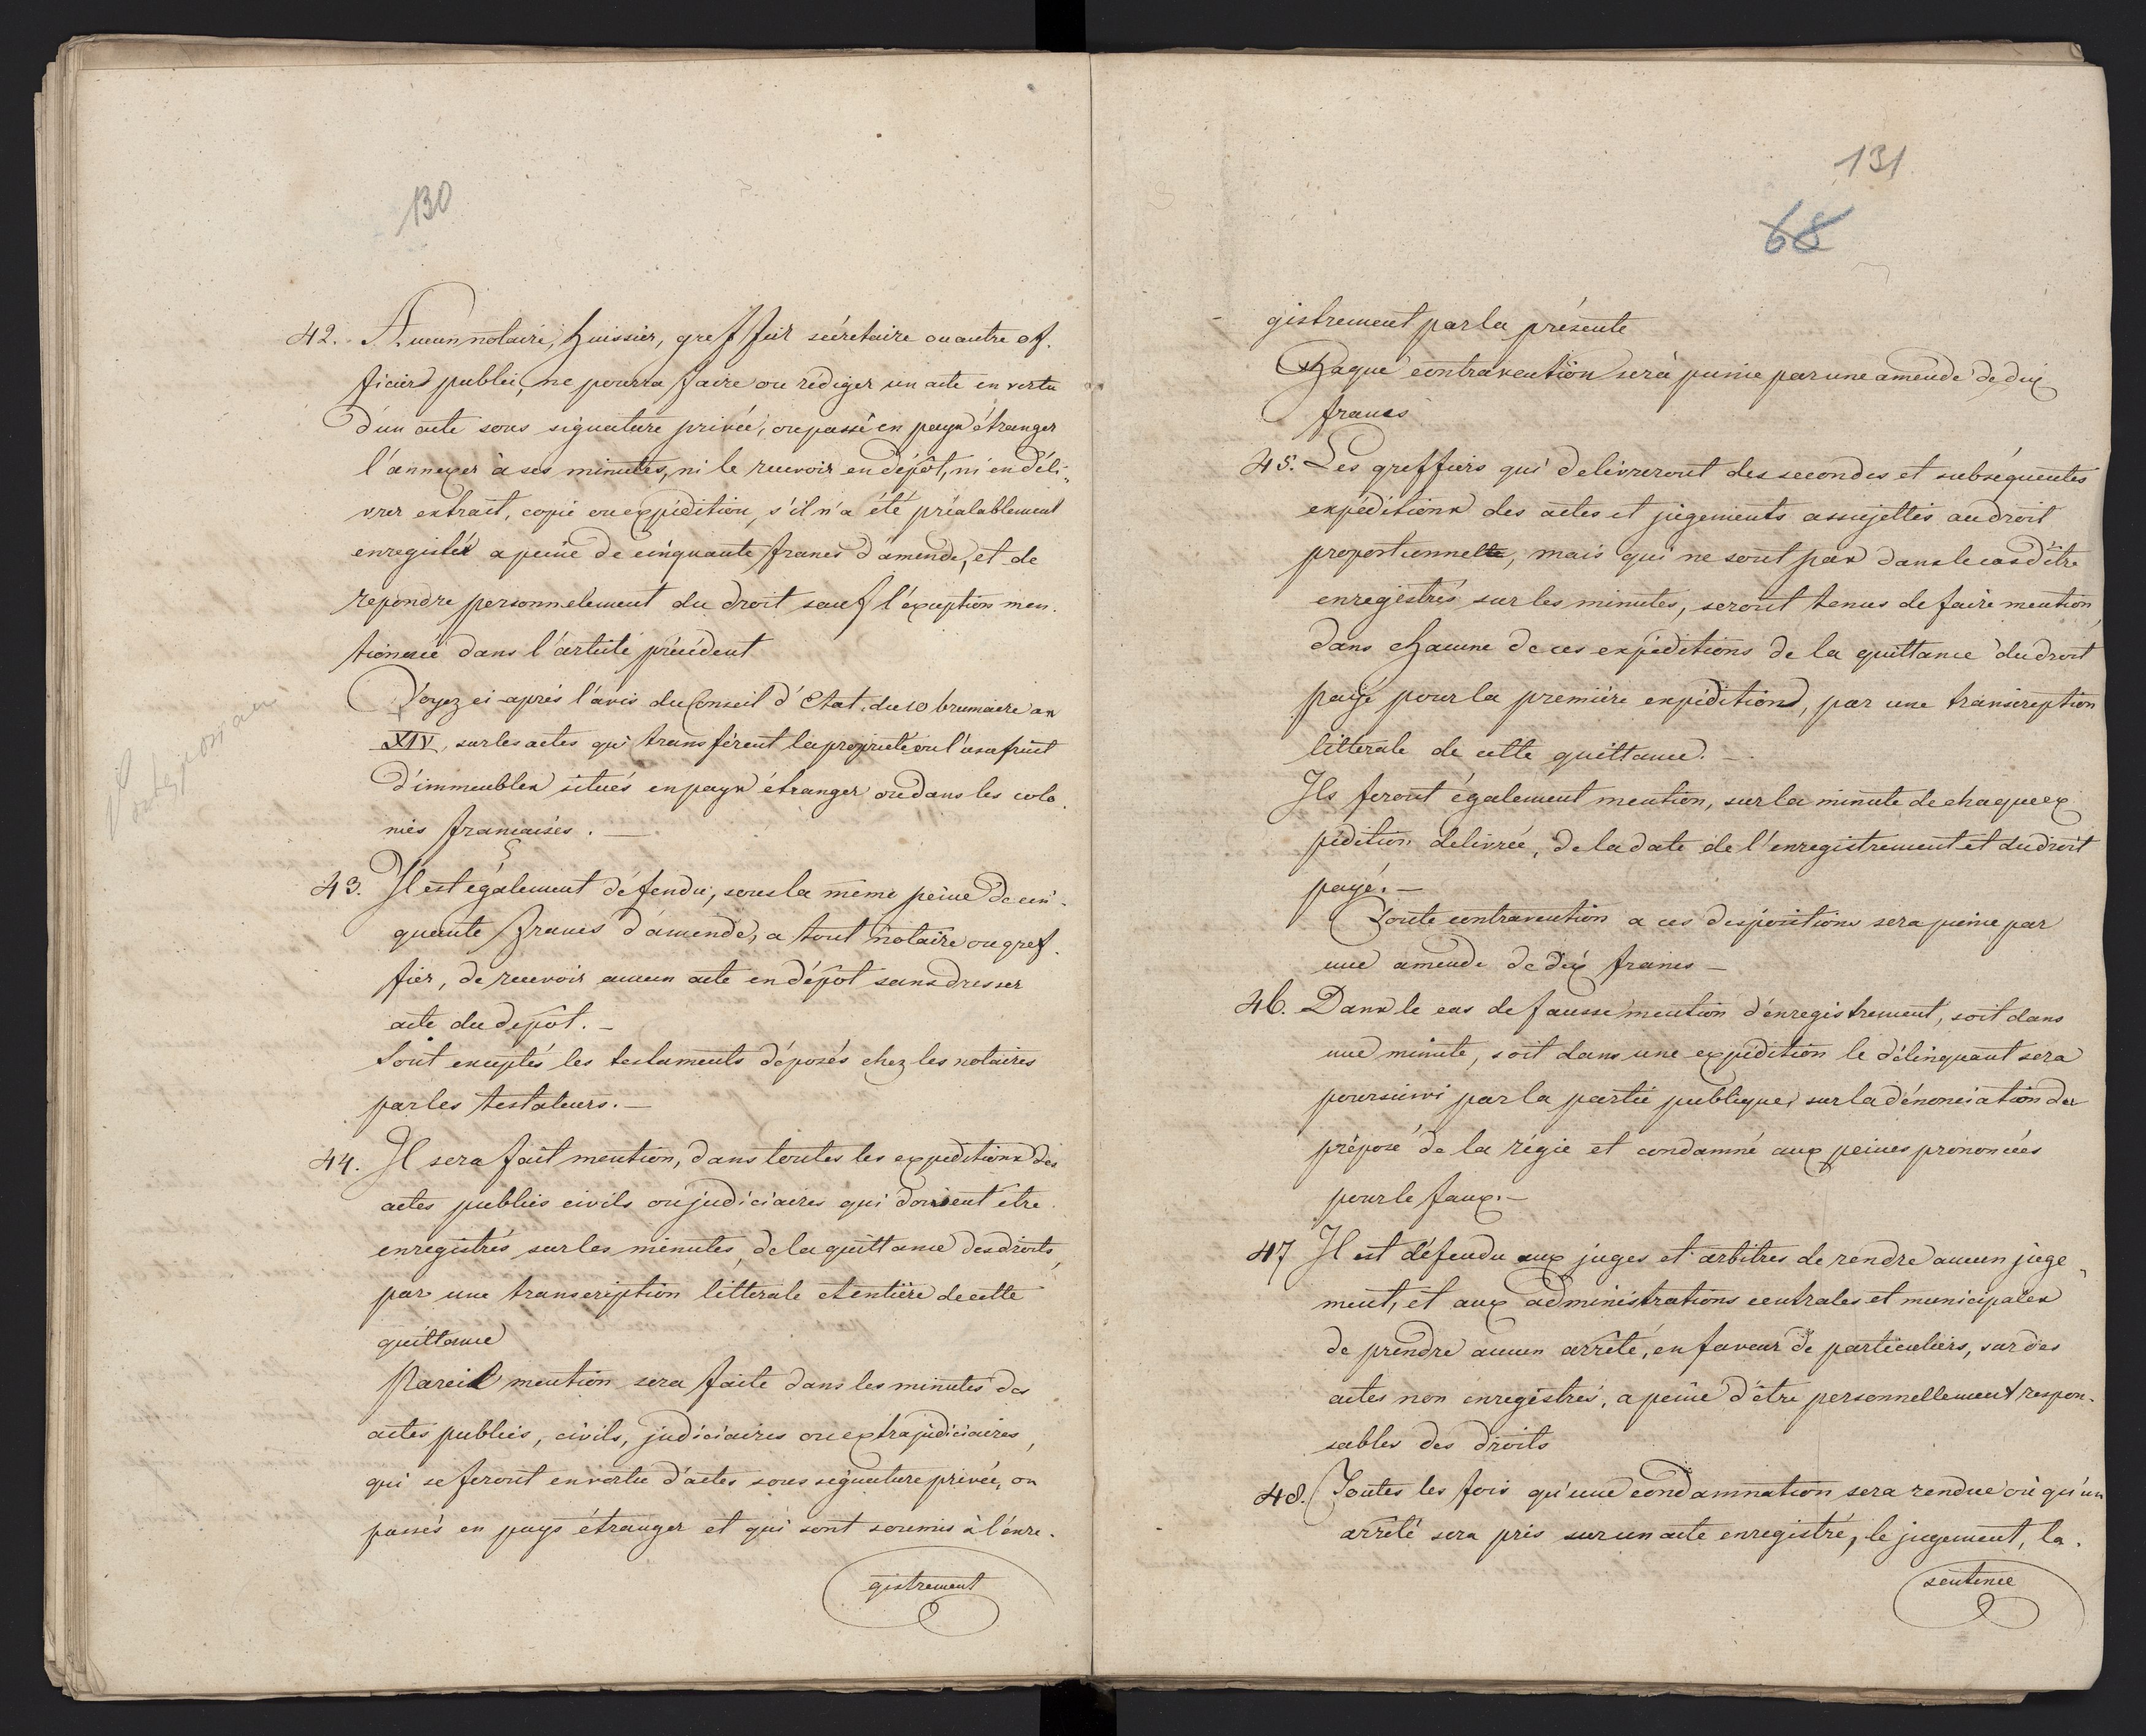 130
42. Aucun notaire, huissier, greffier sécretaire ou autre of-
ficiers public, ne pourra faire ou rédiger un acte en vertu
d'un acte sous signature privée, ou passé en pays étranger
l'annexer à ses minutes, ni le recevoir en dépôt, ni en déli-
vrer extrait, copie ou expédition, s'il n'a été préalablement
enregistré a peine de cinquante francs d'amende, et de
repondre personnelement du droit sauf l'éxception men-
tionnée dans l'article précédent
Voyez ci-après l'avis du Conseil d'Etat, du 10 brumaire an
XIV, sur les actes qui transférent la propriété ou l'usufruit
d'immeubles situés en pays étranger ou dans les colo-
nies françaises. —
43. Il est également défendu, sous la même peine de cin-
quante francs d'amende, a tout notaire ou gref-
fier, de recevoir aucun acte en dépôt sans dresser
acte du depôt. —
Sont exceptés les testaments déposés chez les notaires
par les testateurs. —
44. Il sera fait mention, dans toutes les expeditions des
actes publics civils ou judiciaires qui doivent être
enregistrés sur les minutes, de la quittance des droits,
par une transcription litterale et entière de cette
quittance
Pareil mention sera faite dans les minutes des
actes publics, civils, judiciaires ou extrajudiciaires,
qui se feront en vertu d'actes sous signature privée, ou
passés en pays étranger et qui sont soumis à l'enre-
gistrement
131
68
gistrement par la présente
Chaque contravention sera punie par une amende de dix
francs
45. Les greffiers qui delivreront des secondes et subséquentes
expéditions des actes et jugements assujettis au droit
proportionnelle, mais qui ne sont pas dans le cas d'être
enregistrés sur les minutes, seront tenus de faire mention,
dans chacune de ces expéditions de la quittance du droit
payé pour la première expédition, par une transcription
litterale de cette quittance. —
Ils feront également mention, sur la minute de chaque ex-
pédition delivrée, de la date de l'enregistrement et du droit
payé. —
Toute contravention a ces dispositions sera punie par
une amende de dix francs —
46. Dans le cas de fausse mention d'enregistrement, soit dans
une minute, soit dans une expédition le délinquant sera
poursuivi par la partie publique, sur la dénonciation du
préposé de la régie et condamné aux peines prononcées
pour le faux. —
47 Il est défendu aux juges et arbitres de rendre aucun juge-
ment, et aux administrations centrales et municipales
de prendre aucun arrêté, en faveur de particuliers, sur des
actes non enregistrés, a peine d'être personnellement respon-
sables des droits
48. Toutes les fois qu'une condamnation sera rendue ou qu'un
arrêté sera pris sur un acte enregistré, le jugement, la
sentence